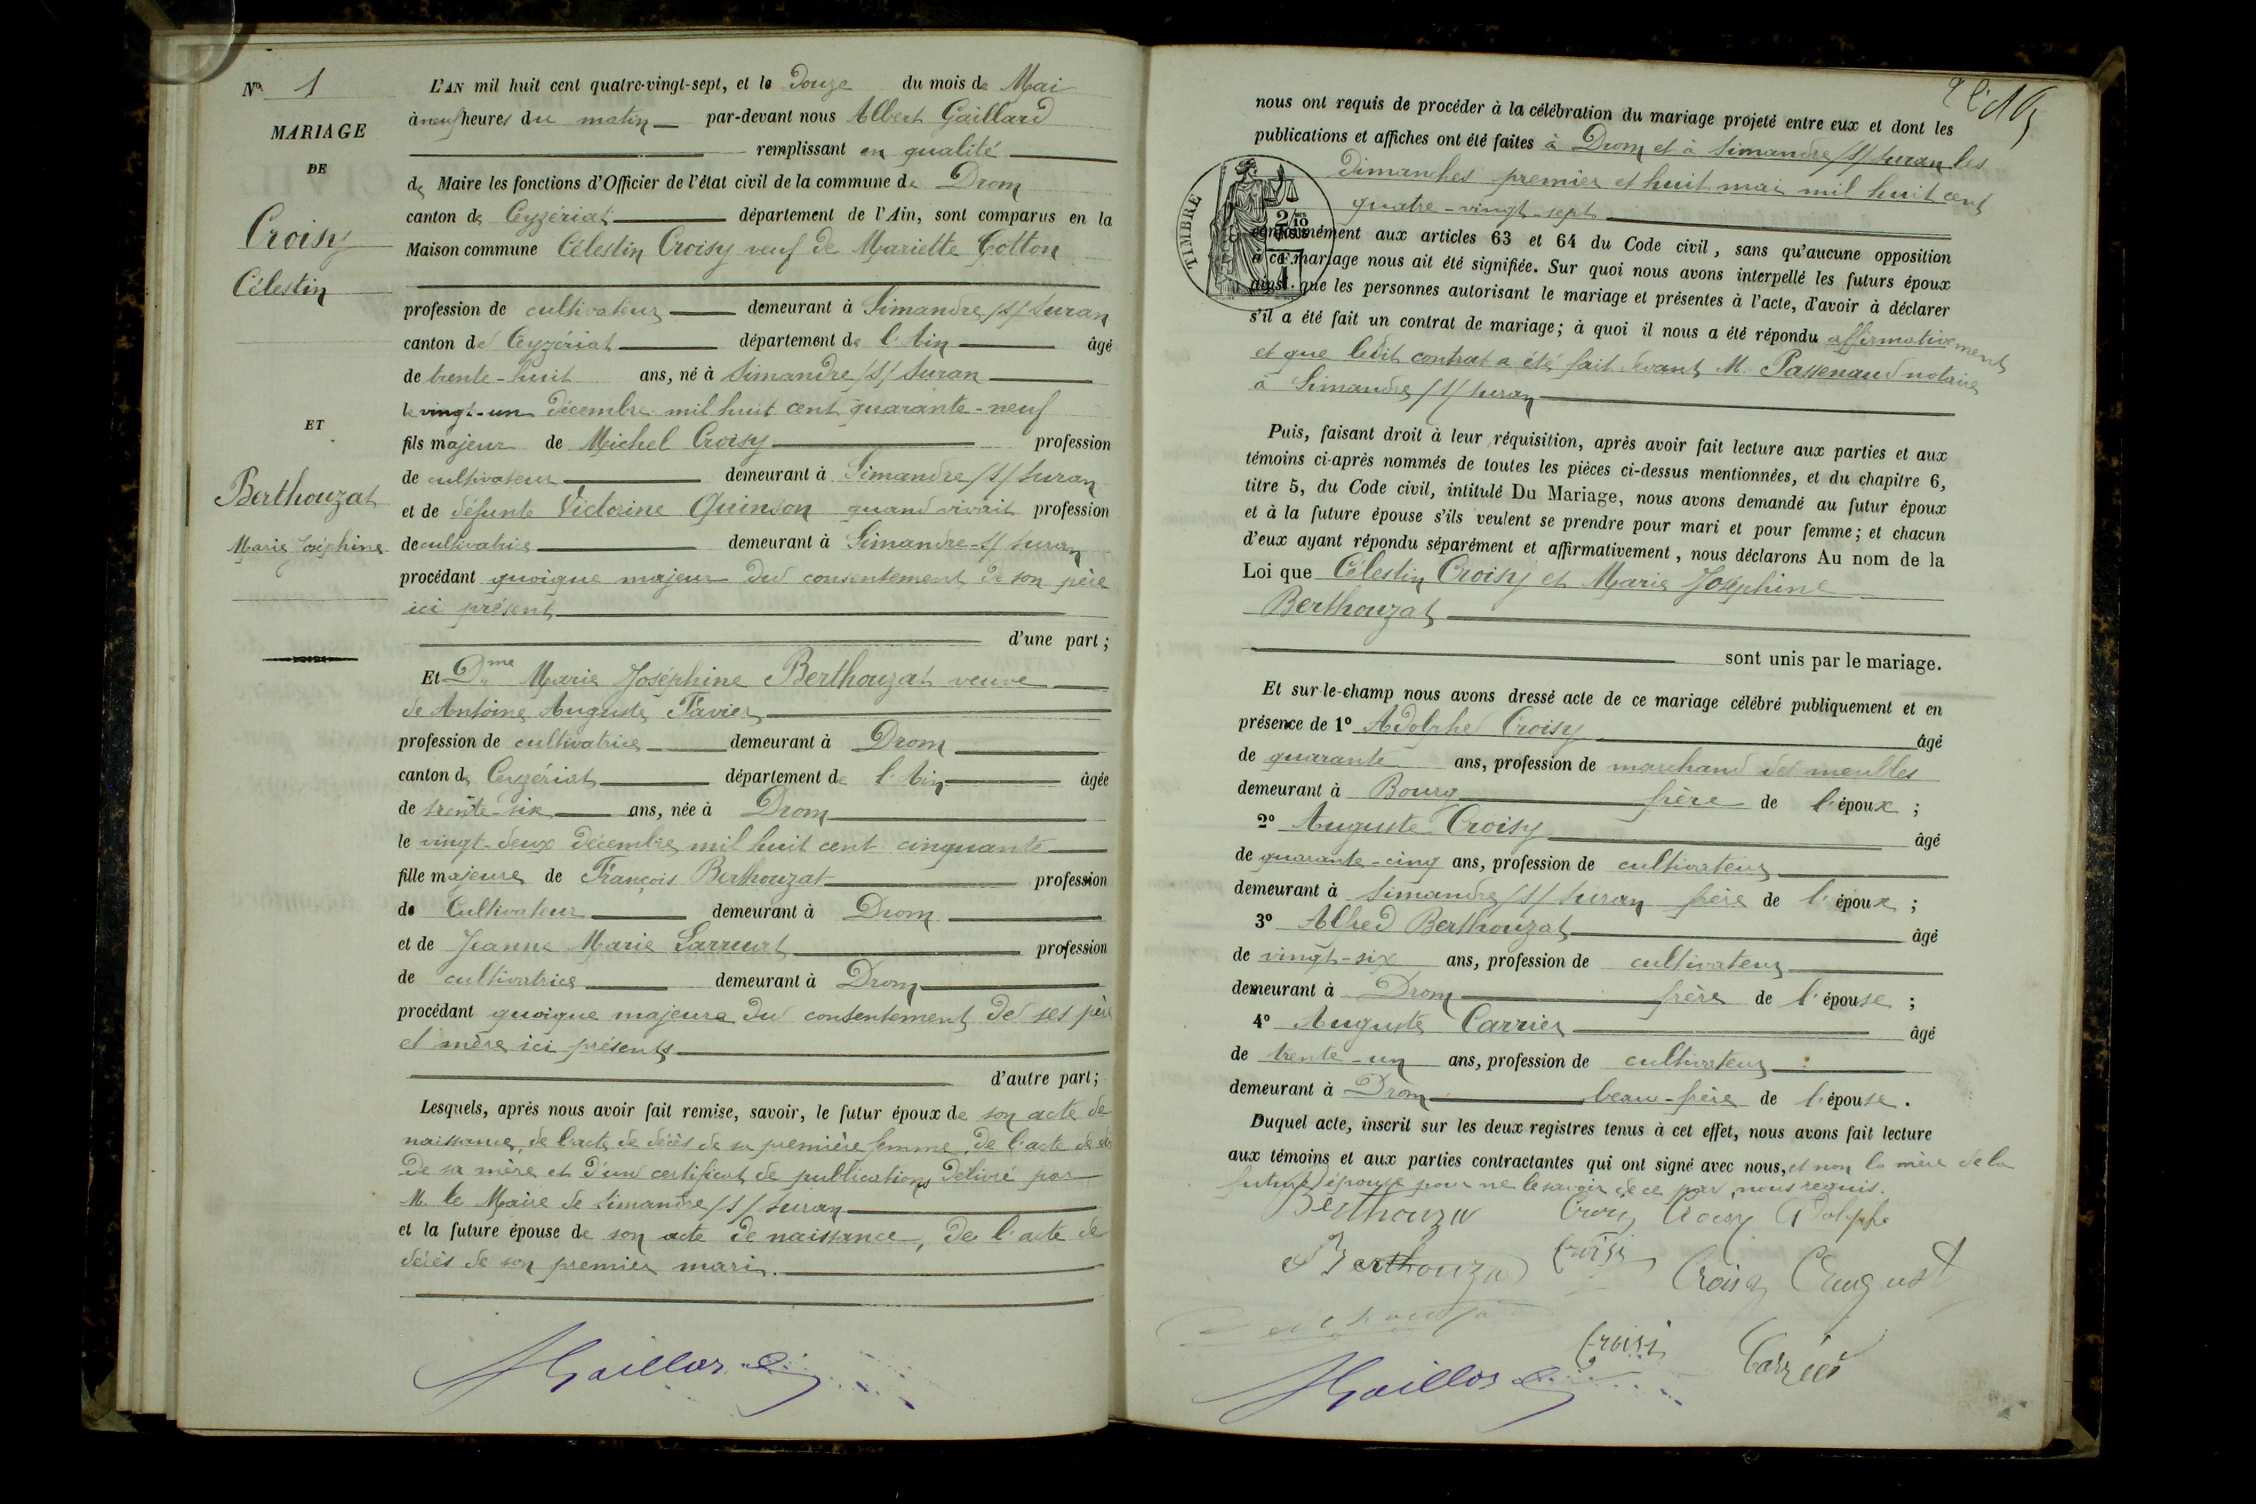 No. 1
MARIAGE
DE
Croisy
Célestin
ET
Berthouzat
Marie Joséphine
L'AN mil huit cent quatre-vingt-sept, et le Douze du mois de Mai
à neuf heures du matin par-devant nous Albert Gaillard
remplissant en qualité
de Maire les fonctions d'Officier de l'état civil de la commune de Drom
canton de Ceyzériat département de l'Ain, sont comparus en la
Maison commune Célestin Croisy veuf de Mariette Cotton
profession de cultivateur demeurant à Simandre /s/ Suran
canton de Ceyzériat département de l'Ain âgé
de trente-huit ans, né à Simandre /s/ Suran
le vingt-un décembre mil huit cent quarante-neuf
fils majeur de Michel Croisy profession
de cultivateur demeurant à Simandre /s/ Suran
et de défunte Victorine Quinson quand vivait profession
de cultivatrice demeurant à Simandre-s/ Suran
procédant quoique majeur du consentement de son père
ici présent
d'une part;
Et Dme Marie Joséphine Berthouzat veuve
de Antoine Auguste Favier
profession de cultivatrice demeurant à Drom
canton de Ceyzériat département de l'Ain âgée
de trente-six ans, née à Drom
le vingt-deux décembre mil huit cent cinquante
fille majeure de François Berthouzat profession
de Cultivateur demeurant à Drom
et de Jeanne Marie profession
de cultivatrice demeurant à Drom
procédant quoique majeure du consentement de ses père
et mère ici présents
d'autre part;
Lesquels, après nous avoir fait remise, savoir, le futur époux de son acte de
naissance, de l'acte de décès de sa première femme, de l'acte de
de sa mère et d'un certificat de publications délivré par
M. le Maire de Simandre /s/ Suran
et la future épouse de son acte de naissance, de l'acte de
décès de son premier mari.
AGaillard
nous ont requis de procéder à la célébration du mariage projeté entre eux et dont les
publications et affiches ont été faites à Drom et à Simandre /s/ Suran les
Dimanches premier et huit mai mil huit cent
quatre-vingt-sept
TIMBRE
2/10
conformément aux articles 63 et 64 du Code civil, sans qu'aucune opposition
à ce mariage nous ait été signifiée. Sur quoi nous avons interpellé les futurs époux
ainsi que les personnes autorisant le mariage et présentes à l'acte, d'avoir à déclarer
s'il a été fait un contrat de mariage; à quoi il nous a été répondu affirmativement
et que ledit contrat a été fait devant M. Passenaud notaire
à Simandre /s/ Suran
Puis, faisant droit à leur réquisition, après avoir fait lecture aux parties et aux
témoins ci-après nommés de toutes les pièces ci-dessus mentionnées, et du chapitre 6,
titre 5, du Code civil, intitulé Du Mariage, nous avons demandé au futur époux
et à la future épouse s'ils veulent se prendre pour mari et pour femme; et chacun
d'eux ayant répondu séparément et affirmativement, nous déclarons Au nom de la
Loi que Célestin Croisy et Marie Joséphine
Berthouzat
sont unis par le mariage.
Et sur-le-champ nous avons dressé acte de ce mariage célébré publiquement et en
présence de 1° Adolphe Croisy âgé
de quarante ans, profession de marchand de meubles
demeurant à Bourg frère de l'époux;
2° Auguste Croisy âgé
de quarante-cinq ans, profession de cultivateur
demeurant à Simandre /s/ Suran frère de l'époux;
3° Alfred Berthouzat âgé
de vingt-six ans, profession de cultivateur
demeurant à Drom frère de l'épouse;
4° Auguste Carrier âgé
de trente-un ans, profession de cultivateur
demeurant à Drom beau-frère de l'épouse.
Duquel acte, inscrit sur les deux registres tenus à cet effet, nous avons fait lecture
aux témoins et aux parties contractantes qui ont signé avec nous, et non la mère de la
future épouse pour ne le savoir, de ce par nous requis.
Berthouza Croisy Adolphe
Berthouza Croisi Croisy August
Croisi Carrier
AGaillard